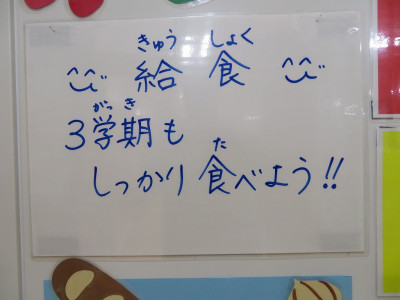 きゅう しょく
給食
がっき
3学期も
た
しっかり食べよう!!